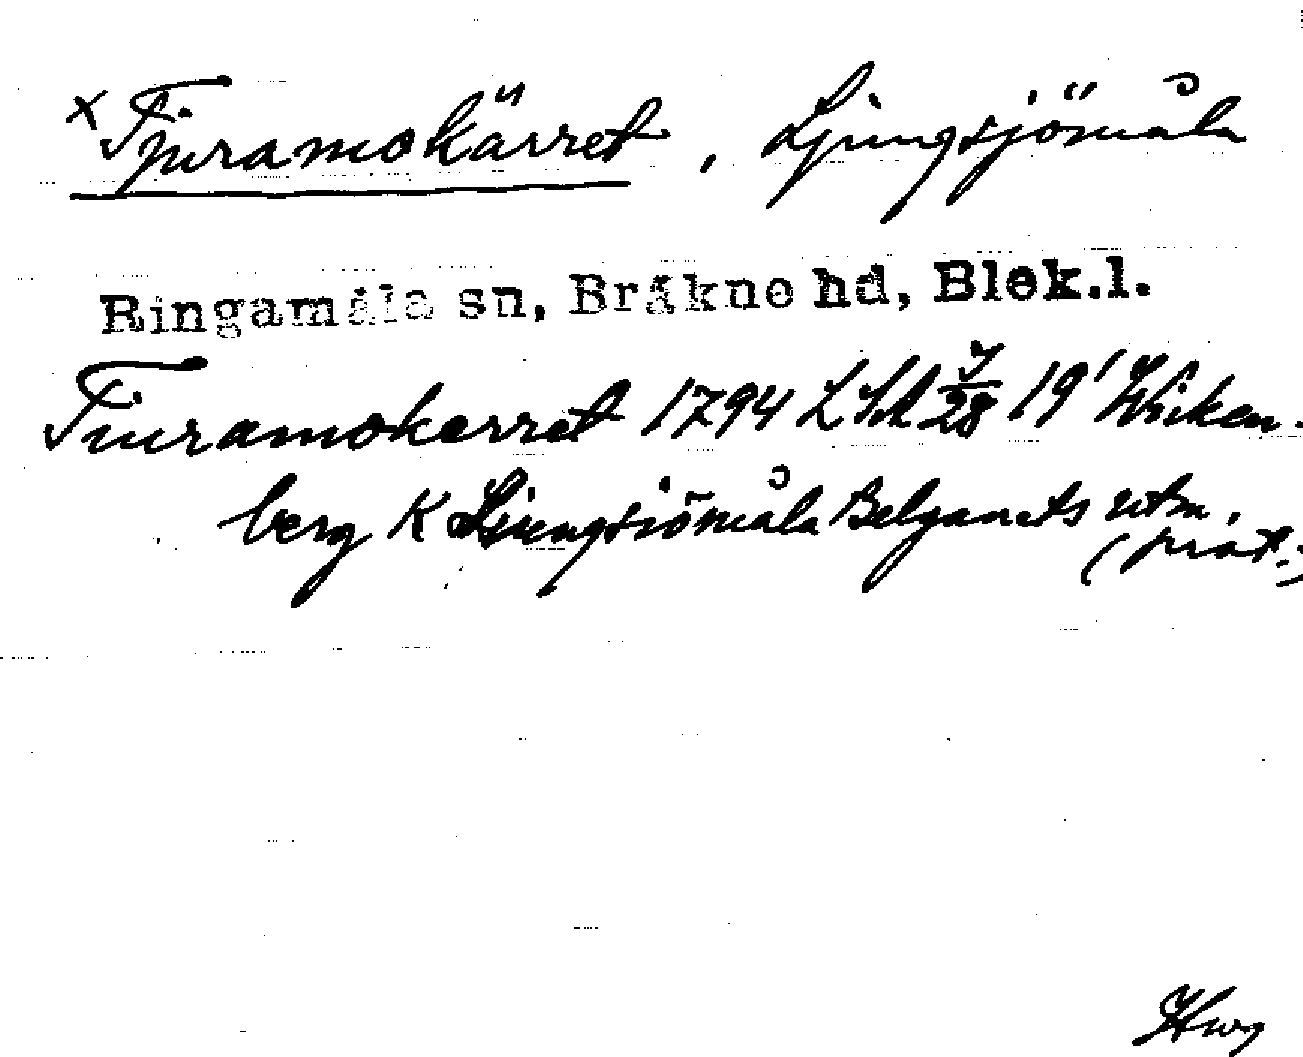 x Tjuramokärret, Ljungsjömåla
Ringamåla sn, Bräkne hd, Blek.l.
Tiuramokerret 1794 LSA J/28 19¹ Wiken-
berg K Liungsiömåla Belganets utm.
(prot.)